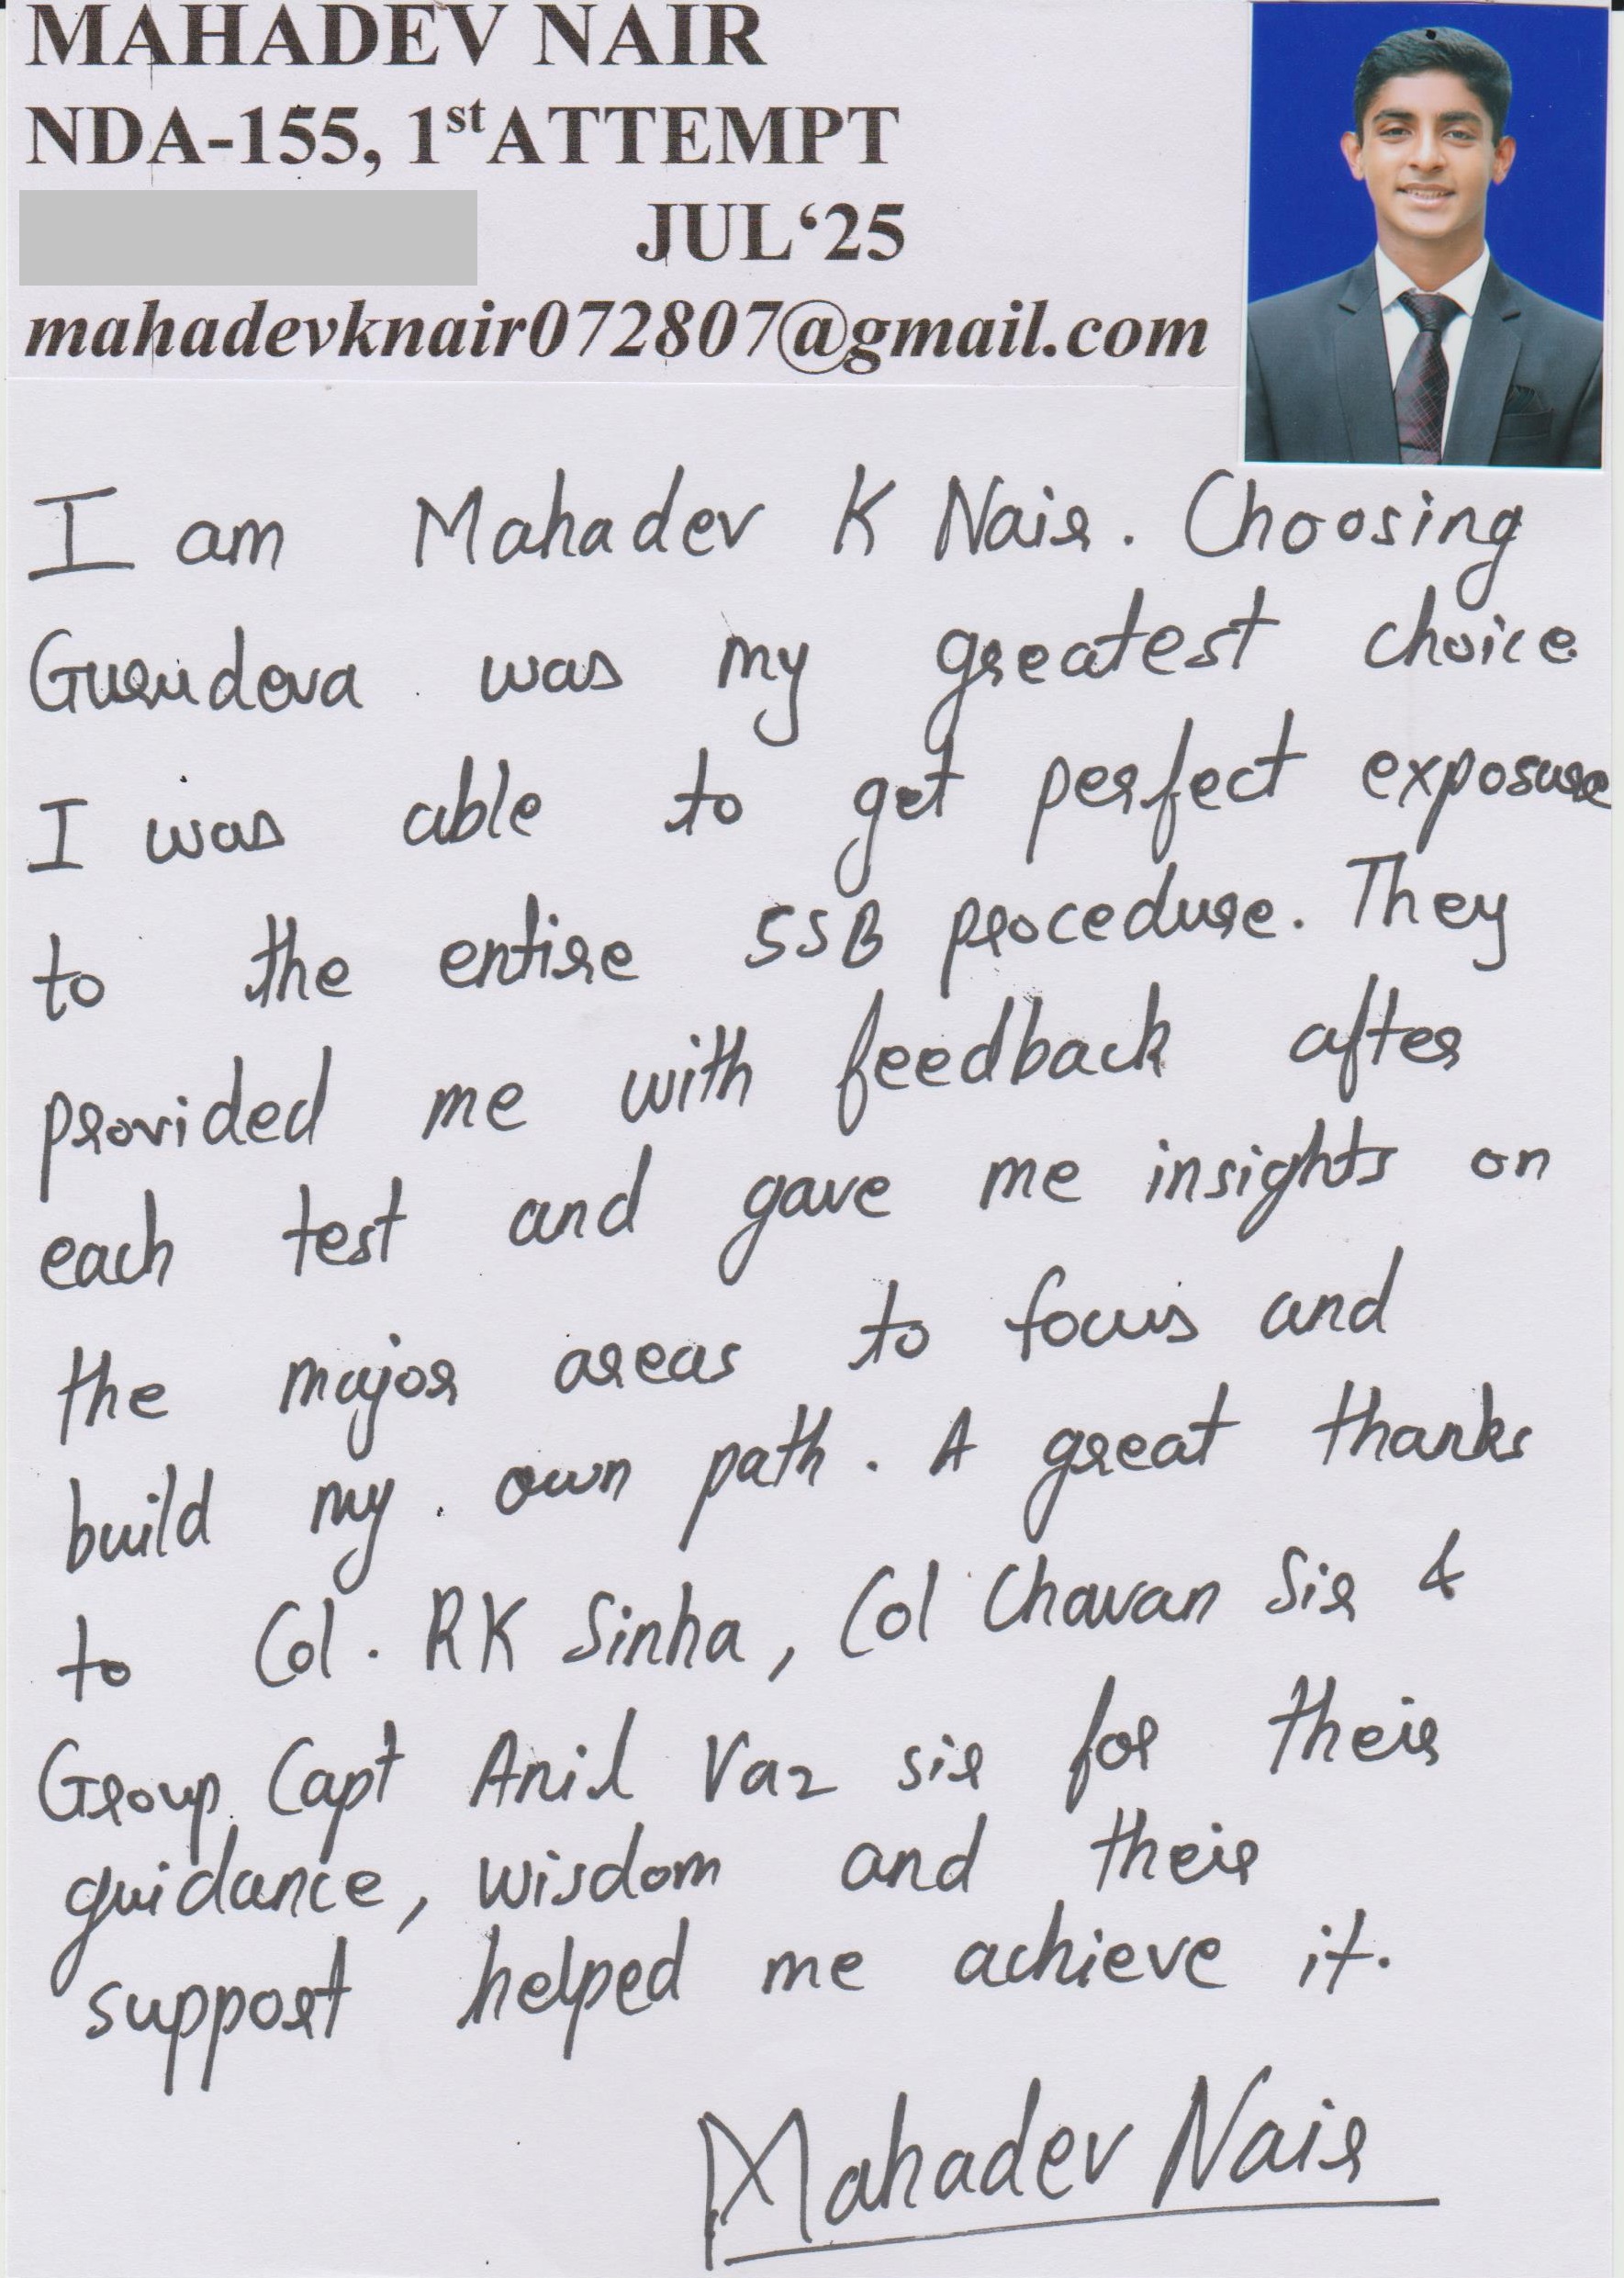 MAHADEV NAIR
NDA-155, 1st ATTEMPT
JUL‘25
mahadevknair072807@gmail.com
I am Mahadev K Nair. Choosing
Gurudeva was my greatest choice.
I was able to get perfect exposure
to the entire SSB procedure. They
provided me with feedback after
each test and gave me insights on
the major areas to focus and
build my own path. A great thanks
to Col. RK Sinha, Col Chavan Sir &
Group Capt Anil Vaz sir for their
guidance, wisdom and their
support helped me achieve it.
Mahadev Nair